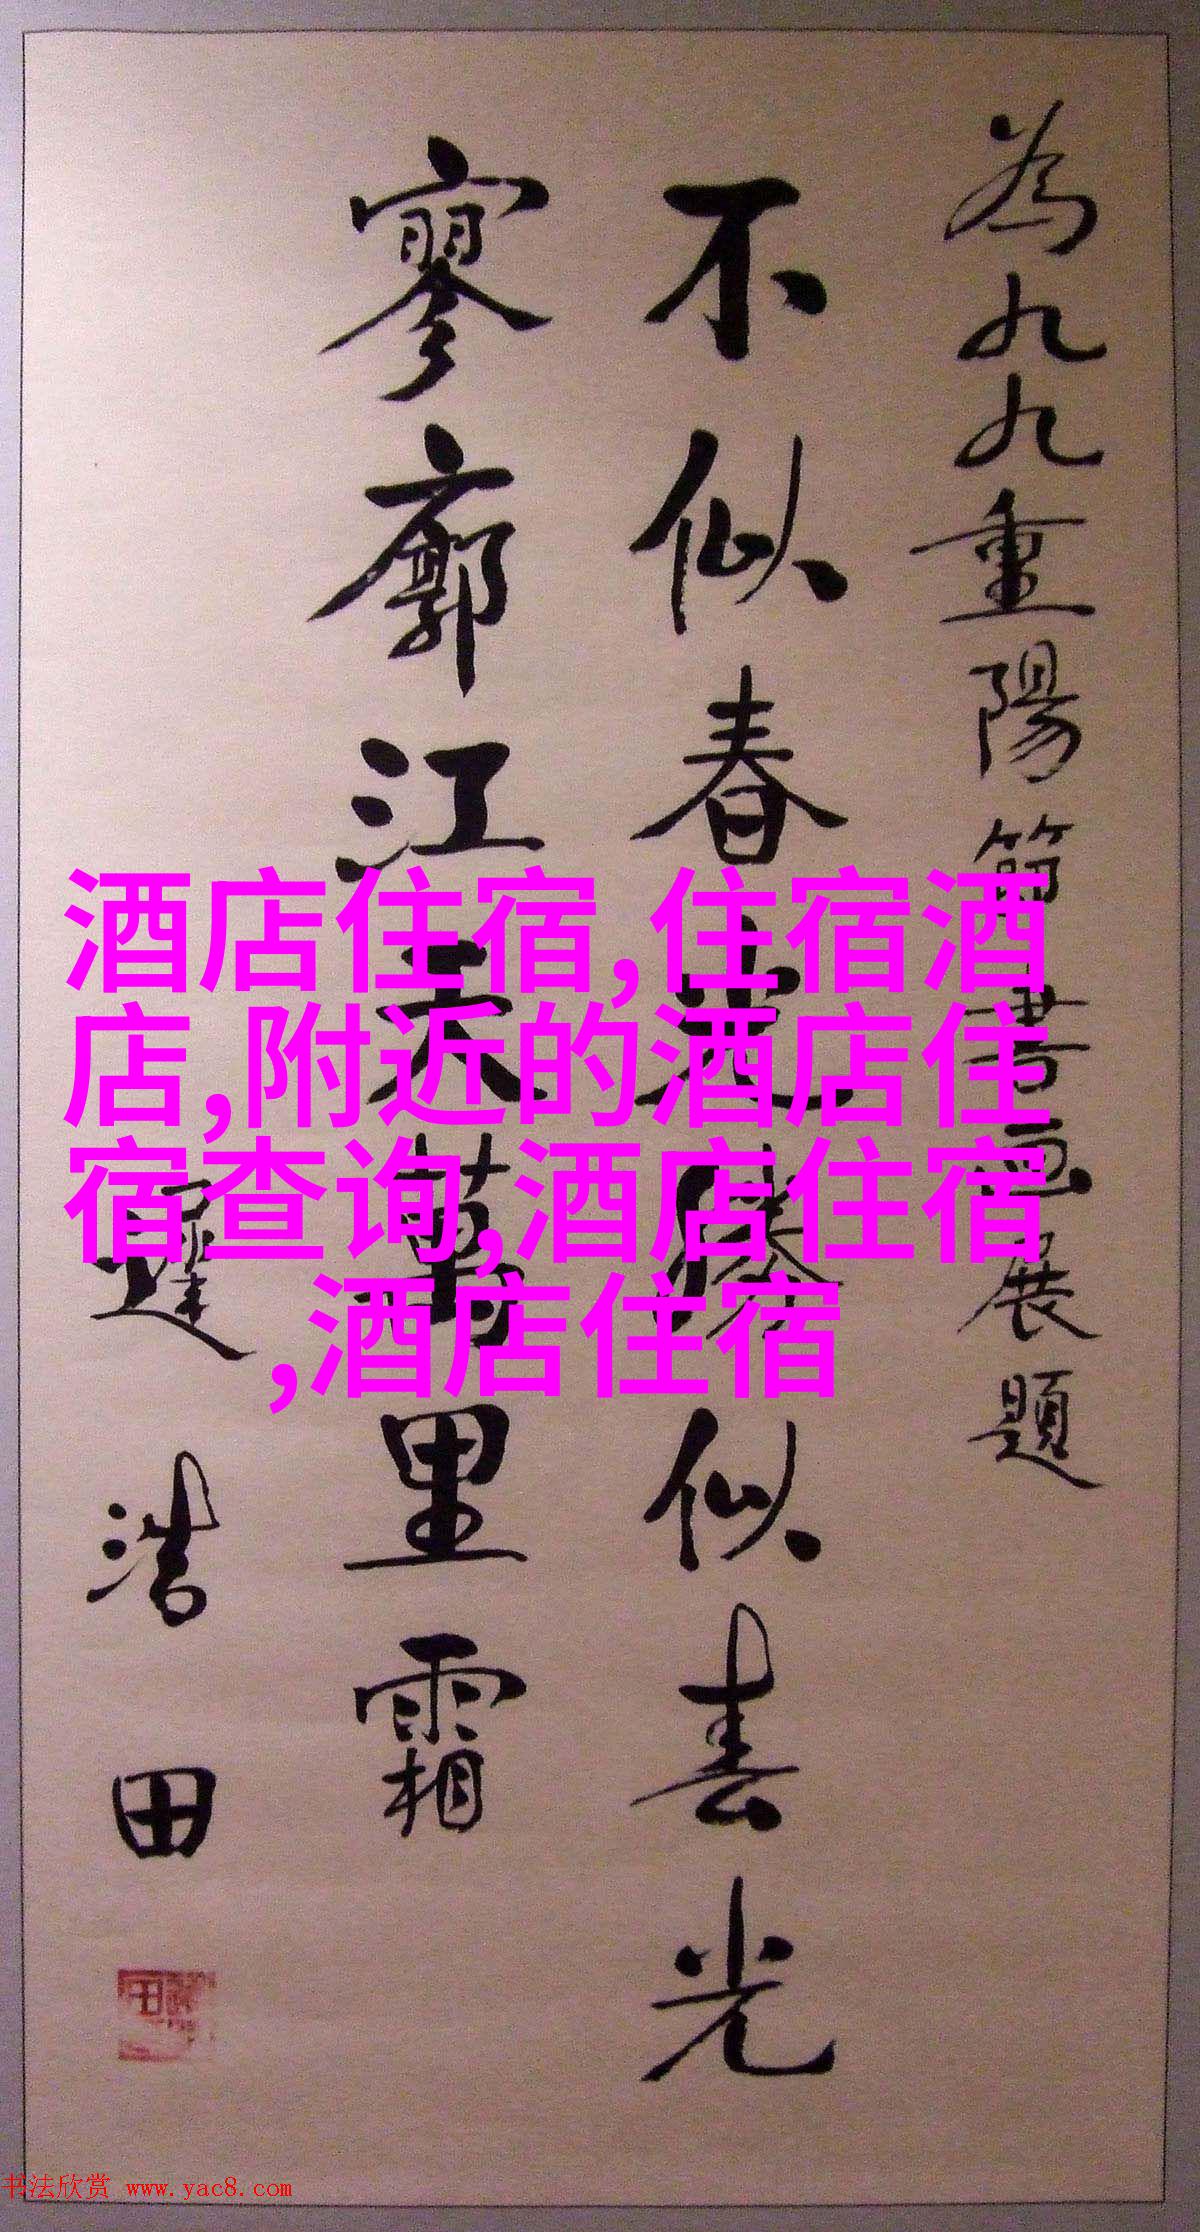 為九九重陽節書画展題
不似春光勝似春光
寥廓江天萬里霜
浩田
酒店住宿,住宿酒
店,附近的酒店住
宿查询,酒店住宿
,酒店住宿
书法欣赏 www.yac8.com